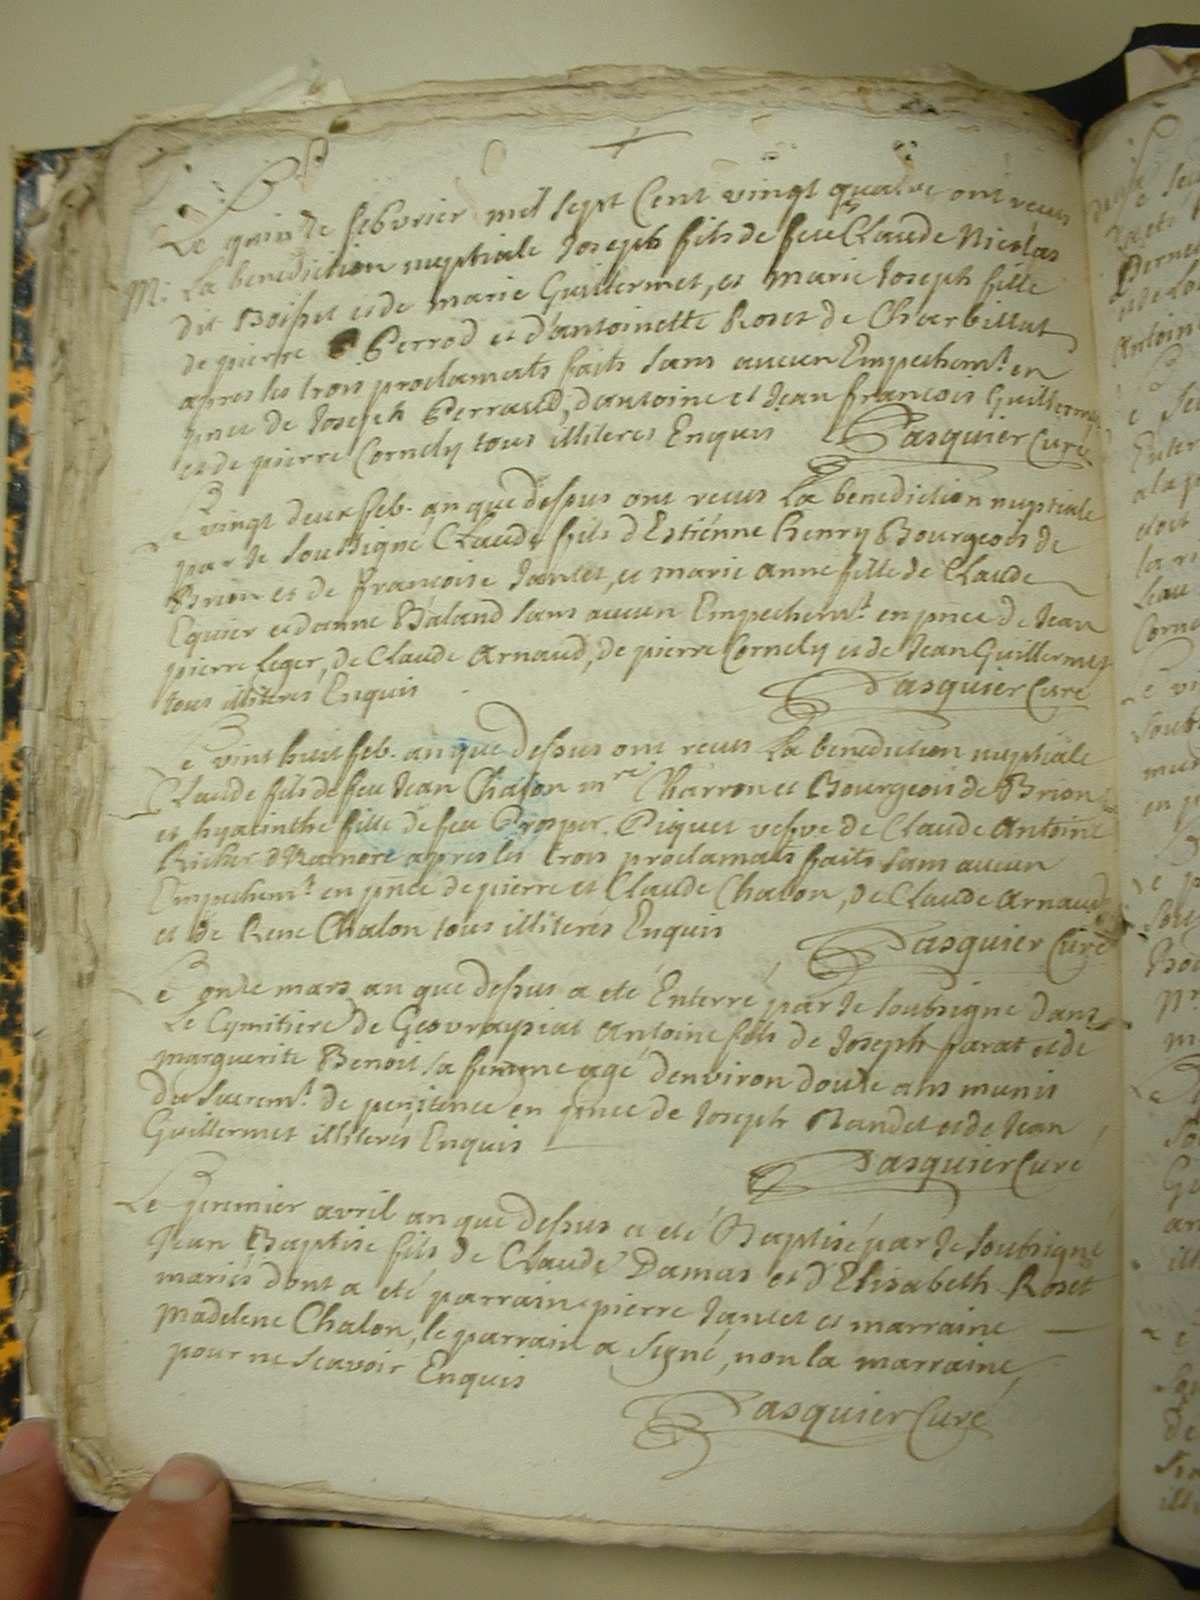 Le quinze febvrier mil sept Cent vingt quatre ont recus
M. La benediction nuptiale Joseph fils de feu Claude Nicolas
dit Boisset et de marie Guillermet, et marie Joseph fille
de pierre Perrod et d'antoinette Roset de Charbillat
apres les trois proclamats faits sans aucun Empechemt. en
pnce de Joseph Perraud, d'antoine et Jean francois Guillermet
et de pierre Cornely tous illiteres Enquis Pasquier Curé
Le vingt deux feb. an que dessus ont recus La benediction nuptiale
par Je soussigné Claude fils d'Estiénne henry Bourgeois de
Brion et de francoise Jantet, et marie anne fille de Claude
Equier et d'anne Baland sans aucun Empechemt. en pnce de Jean
pierre Leger, de Claude Arnaud, de pierre Cornely et de Jean Guillermet
tous illiteres Enquis Pasquier Curé
Le vint huit feb. an que dessus ont recus La benediction nuptiale
Claude fils de feu Jean Chalon mre Charron et Bourgeois de Brion
et hyacinthe fille de feu Prosper Piquet vefve de Claude Antoine
Richer apres les trois proclamats faits sans aucun
Empechemt. en pnce de pierre et Claude Chalon, de Claude Arnaud
et de Rene Chalon tous illiterés Enquis Pasquier Curé
Le onze mars an que dessus a eté Enterré par Je soubsigné dans
Le Cymitiere de Geovraysiat Antoine fils de Joseph parat et de
marguerite Benoit sa femme agé d'environ douze ans munit
du sacremt. de penitence en pnce de Joseph Randet et de Jean
Guillermet illiterés Enquis
Pasquier Curé
Le premier avril an que dessus a eté Baptisé par Je soubsigné
Jean Baptise fils de Claude Damas et d'Elisabeth Roset
mariés dont a eté parrain pierre Jantet et marraine
Madelene Chalon, le parrain a signé, non la marraine,
pour ne scavoir Enquis
Pasquier Curé